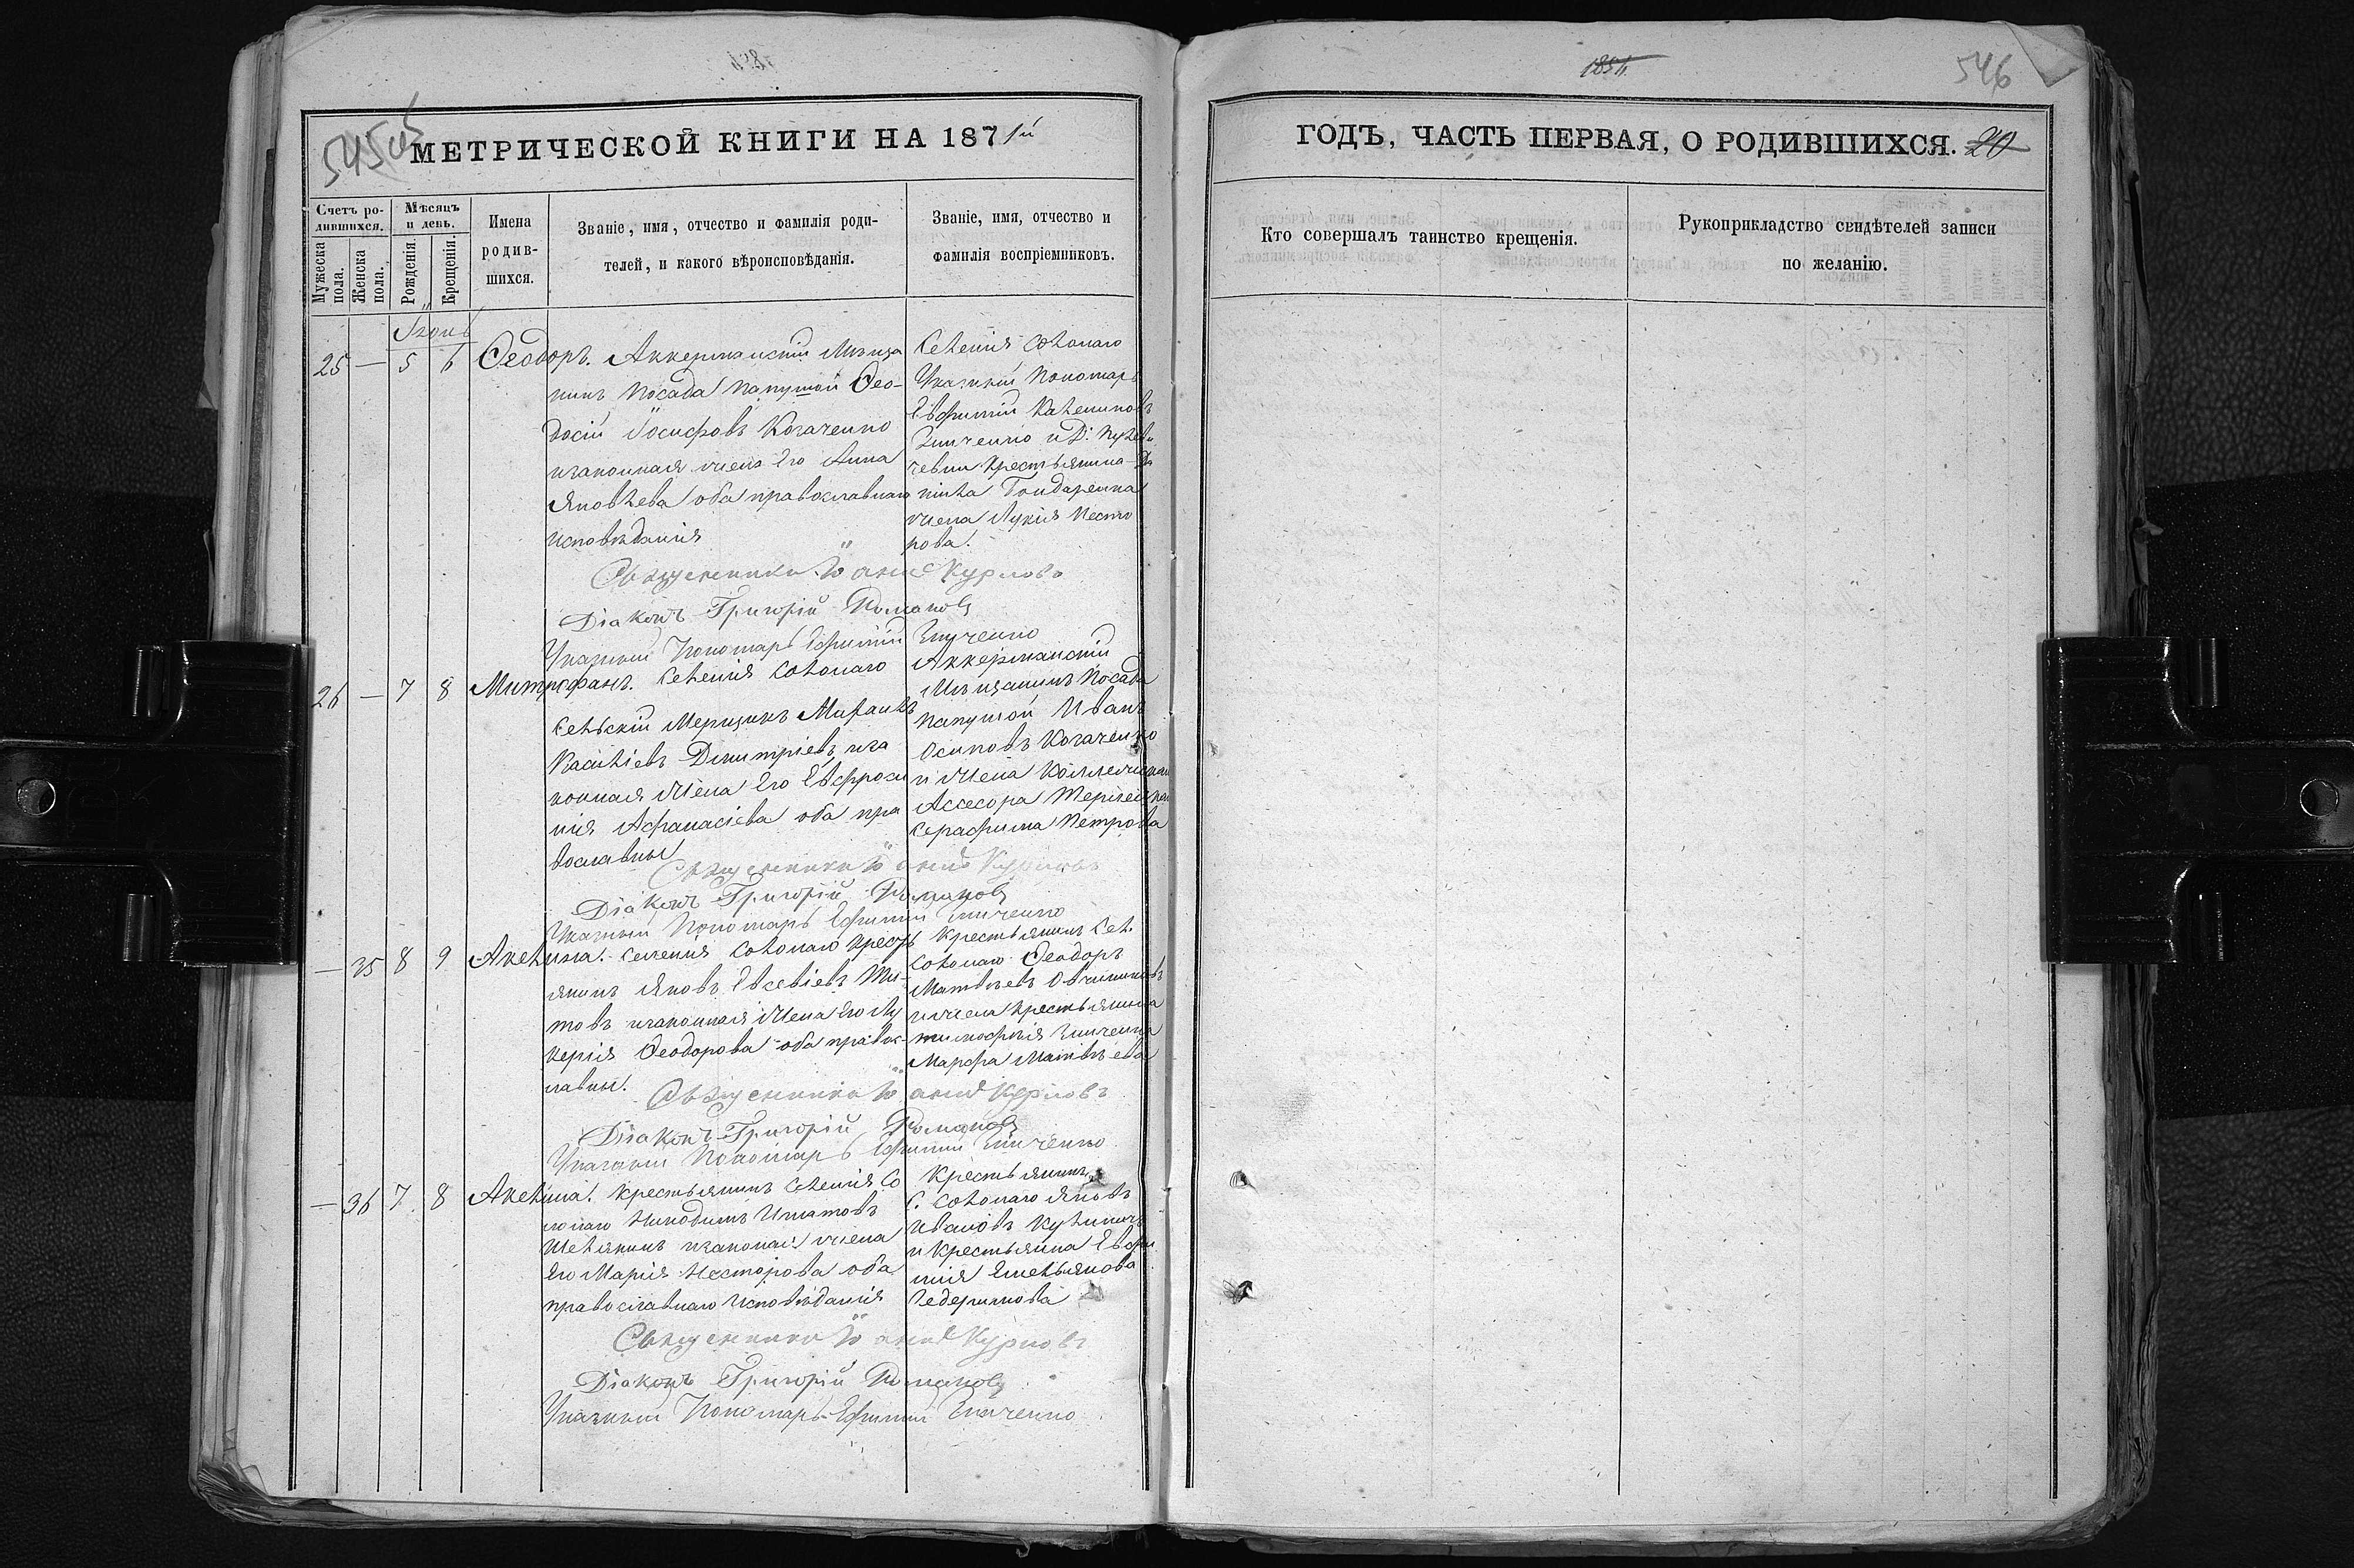 1854.
546
545об
МЕТРИЧЕСКОЙ КНИГИ НА 1871й
ГОДЪ, ЧАСТЬ ПЕРВАЯ, О РОДИВШИХСЯ. 20
Счетъ ро-
дившихся.
Мужеска
пола.
Женска
пола.
Мѣсяцъ
и день.
Рожденія.
Крещенія.
Имена
родив-
шихся.
Званіе, имя, отчество и фамилія роди-
телей, и какого вѣроисповѣданія.
Званіе, имя, отчество и
фамилія воспріемниковъ.
Кто совершалъ таинство крещенія.
Рукоприкладство свидѣтелей записи
по желанію.
25 — 5 6 Ѳеодоръ. Аккерманскій Мѣща
нинъ Посада Папушой Ѳео-
досій Іосифовъ Козаченко
изаконная жена Его Анна
Яковлева оба православнаго
исповѣданія
Селенія Солонаго
Указный Пономарь
Евфимій
Зинченко
крестьянина Да
ніила Бондаренка
жена Лукія Несто
рова.
Священникъ Іоаннъ Курловъ
Діаконъ Григорій Романовъ
Указный Пономарь Ефимій Зинченко
26 — 7 8 Митрофанъ. Селенія Солонаго
Сельскій
Василіевъ Димитріевъ иза
конная жена Его Евфроси
нія Афанасіева оба пра
вославны
Аккерманскій
Мѣщанинъ Посада
Папушой Иванъ
Осиповъ Козаченко
и жена
Ассесора
Серафима Петрова
Священникъ Іоаннъ Курловъ
Діаконъ Григорій Романовъ
Указный Пономарь Ефимій Зинченко
— 35 8 9 Акелина. Селенія Солонаго Кресть
янинъ Яковъ Евсевіевъ Ти-
товъ изаконная жена Его Лу
керія Ѳеодорова оба правос-
лавны.
Крестьянинъ Сел.
Солонаго Ѳеодоръ
Матвѣевъ Овчинниковъ
и жена крестьянина
Тимофѣя Зинченка
Марфа Матвѣева
Священникъ Іоаннъ Курловъ
Діаконъ Григорій Романовъ
Указный Пономарь Ефимій Зинченко
— 36 7 8 Акелина. Крестьянинъ Селенія Со
лонаго Никодимъ Игнатовъ
изаконная жена
Его Марія Несторова оба
православнаго исповѣданія
Крестьянинъ
С. Солонаго Яковъ
Ивановъ
и крестьянка Евфи
мія Емельянова
Священникъ Іоаннъ Курловъ
Діаконъ Григорій Романовъ
Указный Пономарь Ефимій Зинченко